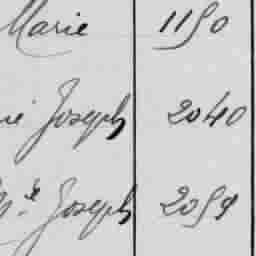 Marie 1150
Joseph 2040
Joseph 2059